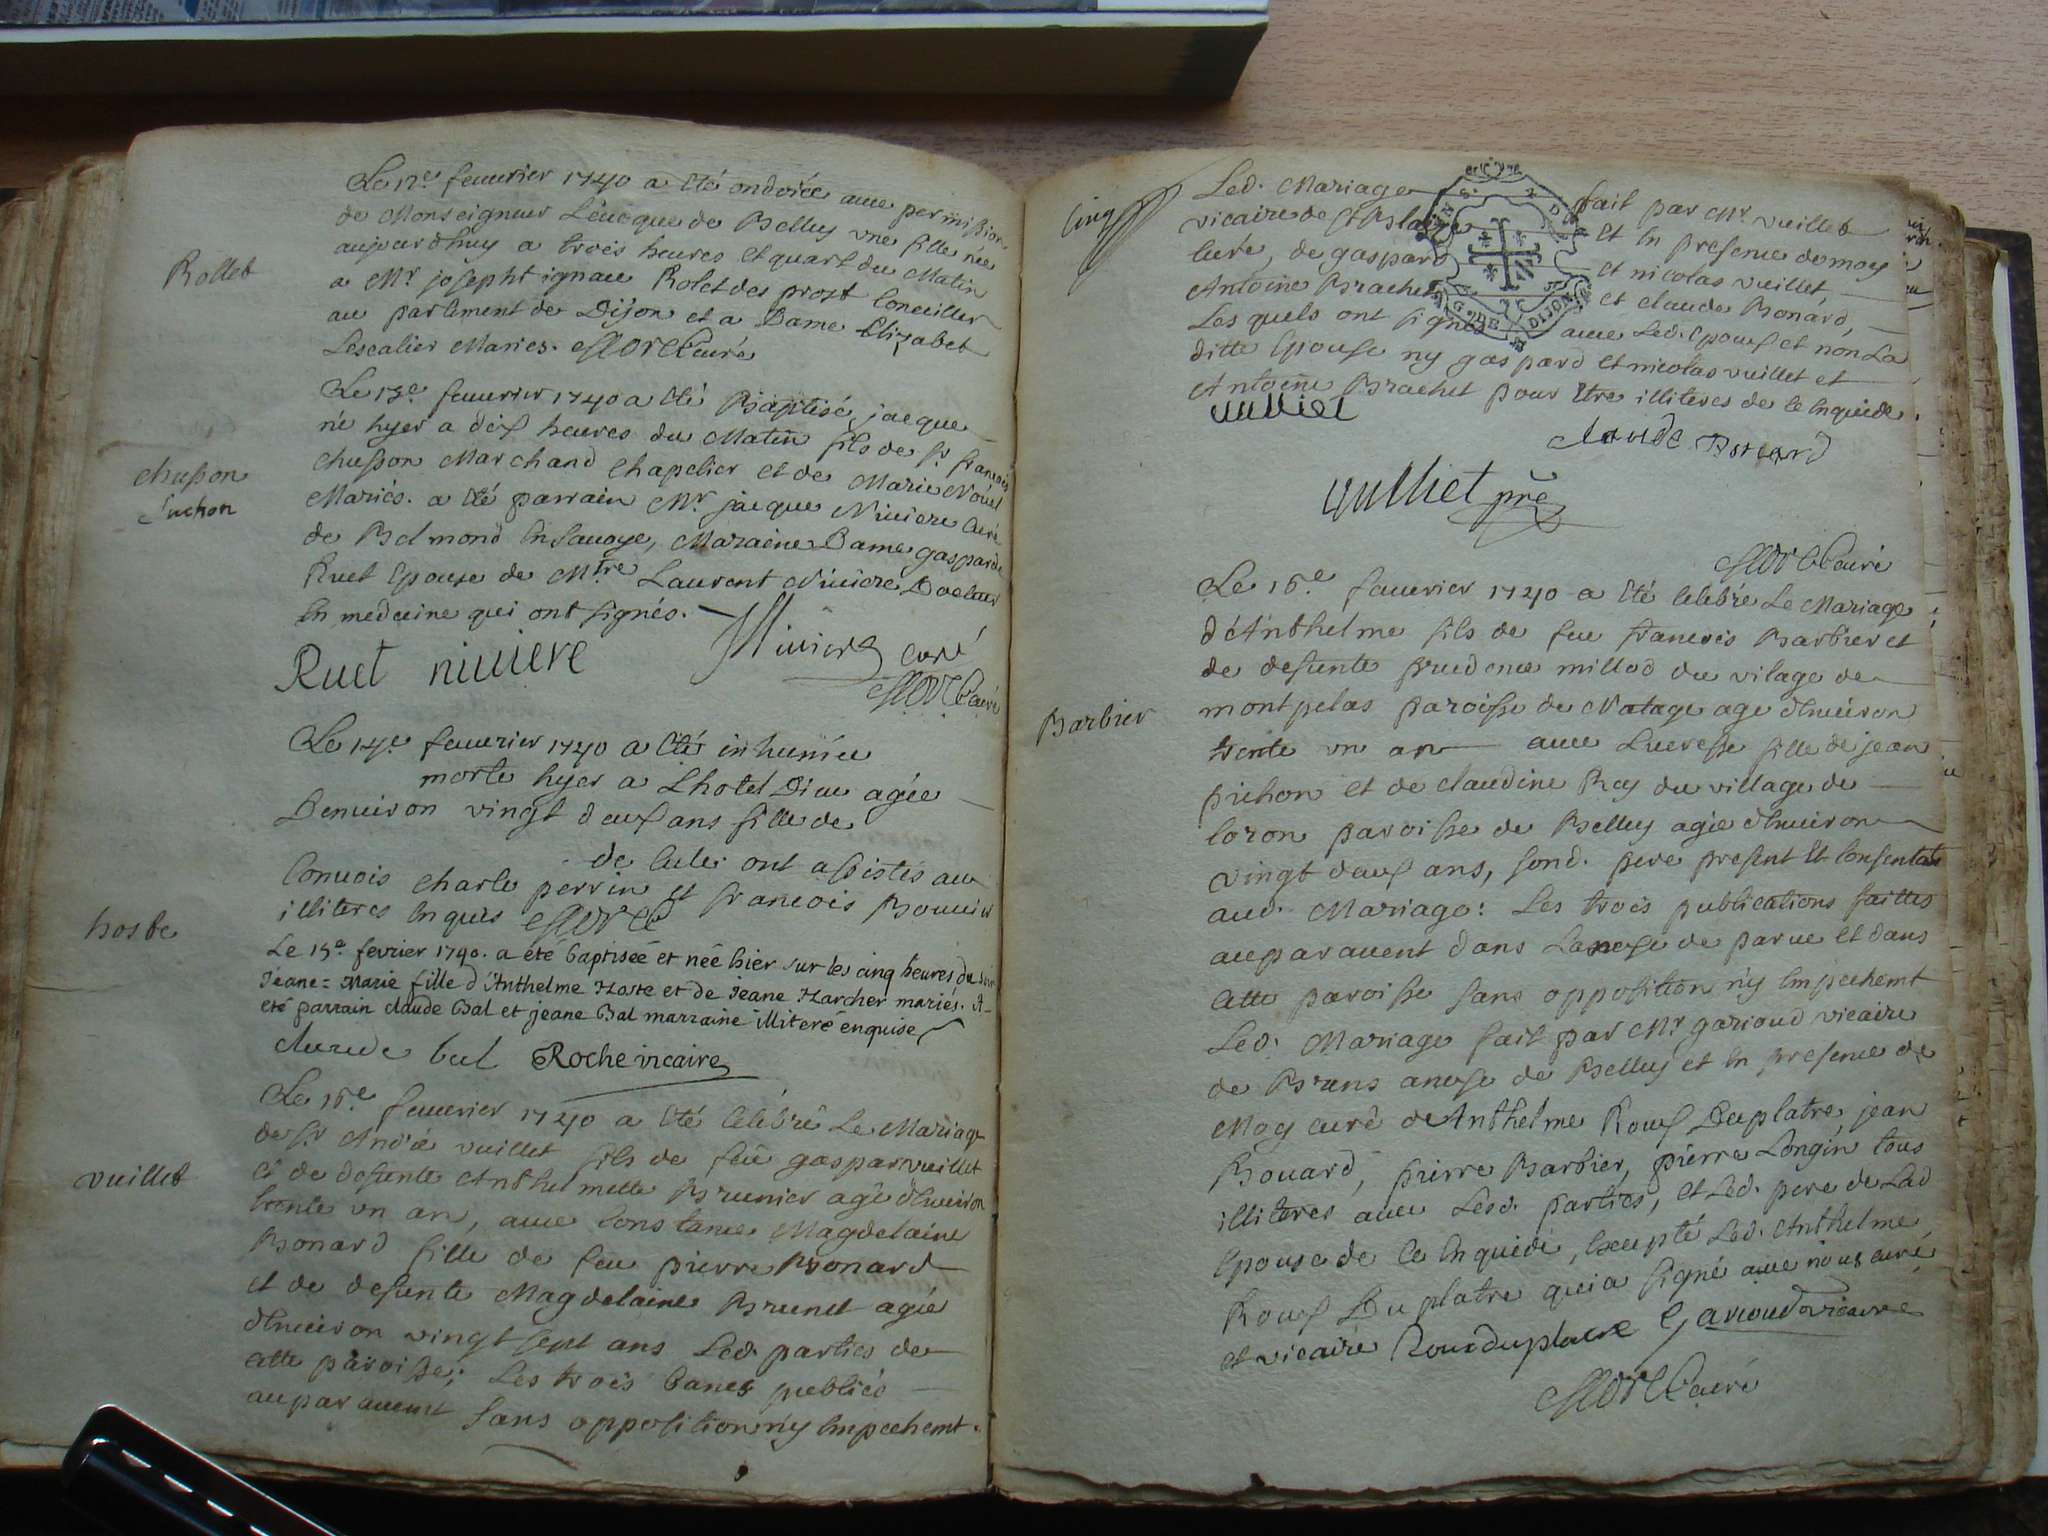 Rollet
Le 12e feuurier 1740 a eté ondoiée auec permission
de Monseigneur L'éuêque de Belley vne fille née
aujourd'huy a trois heures et quart du Matin
a Mr josepht ignace Rolet des prost Conceiller
au parlement de Dijon et a Dame Elizabet
Lescalier Mariés. Curé
Le 13e feuurier 1740 a eté Baptisé jacque
né hyer a dix heures du Matin fils de Sr francois
chusson
Suchon
chusson Marchand Chapelier et de Marie
Mariés. a eté parrain Mr jacque Niuiere Curé
de Belmond en Sauoye, Maraine Dame gasparde
Ruet Epouse de Mtre Laurent Niuiere Docteur
en medecine qui ont signés.
Ruet niuiere Niuiere curé
Curé
Le 14e feuurier 1740 a eté inhumée
morte hyer a L'hotel Dieu agée
Denuiron vingt deux ans fille de
de ont assistés au
Conuois charle perrin et francois Bouuier
illiteres enquis
hoste
Le 15e fevrier 1740. a été baptiseé et neê hier sur les cinq heures du soir
Jeane=Marie fille d'Anthelme Hoste et de Jeane Harcher mariés. A
eté parrain claude Bal et jeane Bal marraine illiteré enquise
claude bal Roche vicaire
Le 16e feuurier 1740 a eté Celebré Le Mariage
vuillet
de Sr André vuillet fils de feû gaspar vuillet
et de defunte Anthelmette Brunier agé d'enuiron
trente vn an, auec Constance Magdelaine
Bonard fille de feu pierre Bonard
et de defunte Magdelaine Brunet agée
d'enuiron vingt sept ans Led. parties de
cette paroisse; Les trois bancs publiés
auparauent sans opposition n'y Empechemt.
Cinq
Led. Mariage fait par Mr. vuillet
vicaire de et En presence de moy
Curé, de gaspard et nicolas vuillet
Antoine Brachet et claude Bonard,
Les quels ont signés auec Led. Epoux et non La
ditte Epouse ny gaspard et nicolas vuillet et
Antoine Brachet pour être illiteres de ce Enquide.
vulliet
claude Bonard
vulliet pre
Curé
Le 16e. feuurier 1740 a eté Celebré Le Mariage
d'Anthelme fils de feu francois Barbier et
de defunte prudence millod du vilage de
Barbier
montpelas paroisse de Natage age d'enuiron
trente vn an auec Lucresse fille de jean
pichon et de claudine Rey du village de
Coron paroisse de Belley agée d'enuiron
vingt deux ans, sond. pere present et Consentat
aud. Mariage: Les trois publications faittes
auparauent dans Lanexe de parue et dans
cette paroisse sans opposition n'y Empechemt
Led. Mariage fait par Mr garioud vicaire
de Brens anexe de Belley et En presence de
Moy curé de Anthelme Roux Duplatre, jean
Bouard, pierre Barbier, pierre Longin tous
illiteres auec Lesd. parties, et Led. pere de Lad
Epouse de ce Enquide, Excepté Led. Anthelme
Roux Duplatre qui a signé auec nous curé
et vicaire Rouxduplatre Garioud vicaire
Curé